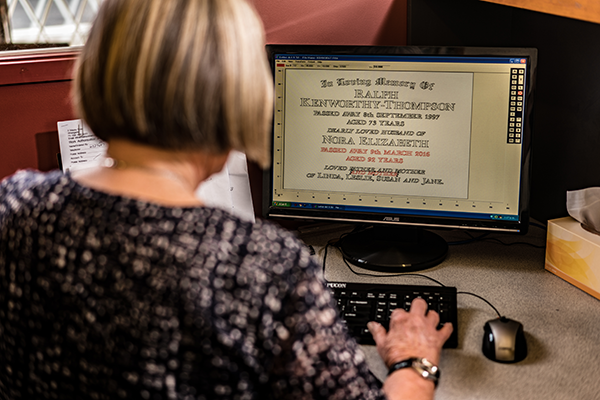 In Loving Memory Of
RALPH
KENWORTHY-THOMPSON
PASSED AWAY 8th SEPTEMBER 1997
AGED 73 YEARS
DEARLY LOVED HUSBAND OF
NORA ELIZABETH
PASSED AWAY 9th MARCH 2016
AGED 92 YEARS
LOVED FATHER AND MOTHER
OF LINDA, LESLIE, SUSAN AND JANE.
ASUS